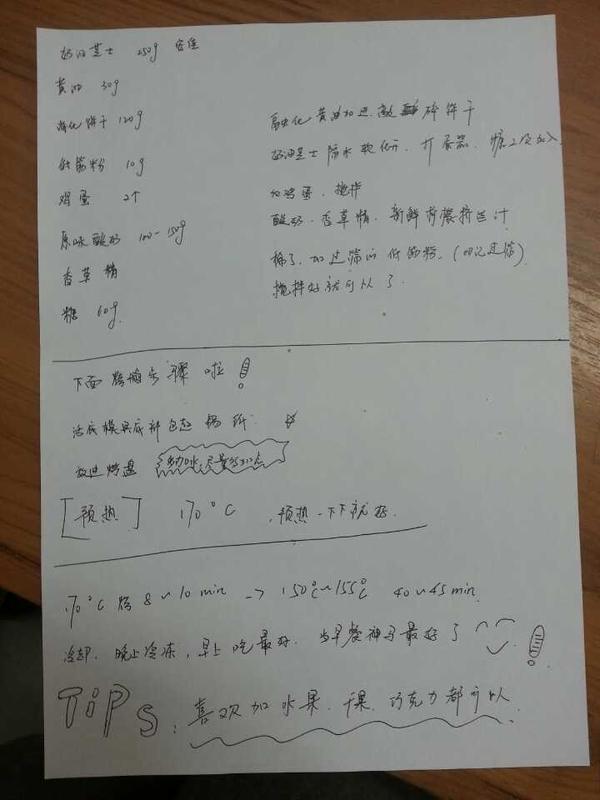 奶油芝士 250g
黄油 30g
消化饼干 120g
低筋粉 10g
鸡蛋 2个
原味酸奶 100-150g
香草精
糖 60g
融化黄油加进 碎饼干
奶油芝士 隔水软化, 打蛋器, 糖
鸡蛋, 搅拌
酸奶, 香草精, 新鲜 汁
加过筛的低筋粉, (过筛)
搅拌好就可以了
下面 步骤啦!
活底模具底部包起锡纸
放进烤盘 加水,尽量
[预热] 170°C, 预热一下下就好.
170°C 烤 8~10min → 150°C~155°C 40~45min
冷却, 晚上冷冻, 早上吃最好. 当早餐神马最好了 !
TiPs: 喜欢加水果, 干果, 巧克力都可以